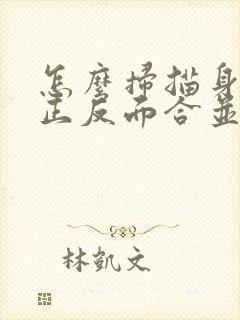 怎麼掃描身
正反而合並
林凱文